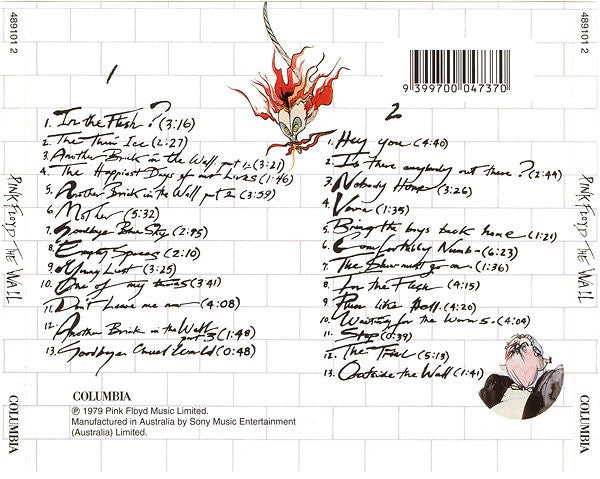 4891012
PINK FLOYD THE WALL
COLUMBIA
1
1. In the Flesh? (3:16)
2. The Thin Ice (2:27)
3. Another Brick in the Wall part 1 (3:21)
4. The Happiest Days of our Lives (1:46)
5. Another Brick in the Wall part 2 (3:59)
6. Mother (5:32)
7. Goodbye Blue Sky (2:45)
8. Empty Spaces (2:10)
9. Young Lust (3:25)
10. One of my turns (3:41)
11. Don't Leave me now (4:08)
12. Another Brick in the Wall part 3 (1:48)
13. Goodbye Cruel World (0:48)
9 399700 047370
2
1. Hey you (4:40)
2. Is there anybody out there? (2:44)
3. Nobody Home (3:26)
4. Vera (1:35)
5. Bring the boys back home (1:21)
6. Comfortably Numb (6:23)
7. The Show must go on (1:36)
8. In the Flesh (4:15)
9. Run like Hell (4:20)
10. Waiting for the Worms (4:04)
11. Stop (0:39)
12. The Trial (5:13)
13. Outside the Wall (1:41)
COLUMBIA
℗ 1979 Pink Floyd Music Limited.
Manufactured in Australia by Sony Music Entertainment
(Australia) Limited.
4891012
PINK FLOYD THE WALL
COLUMBIA